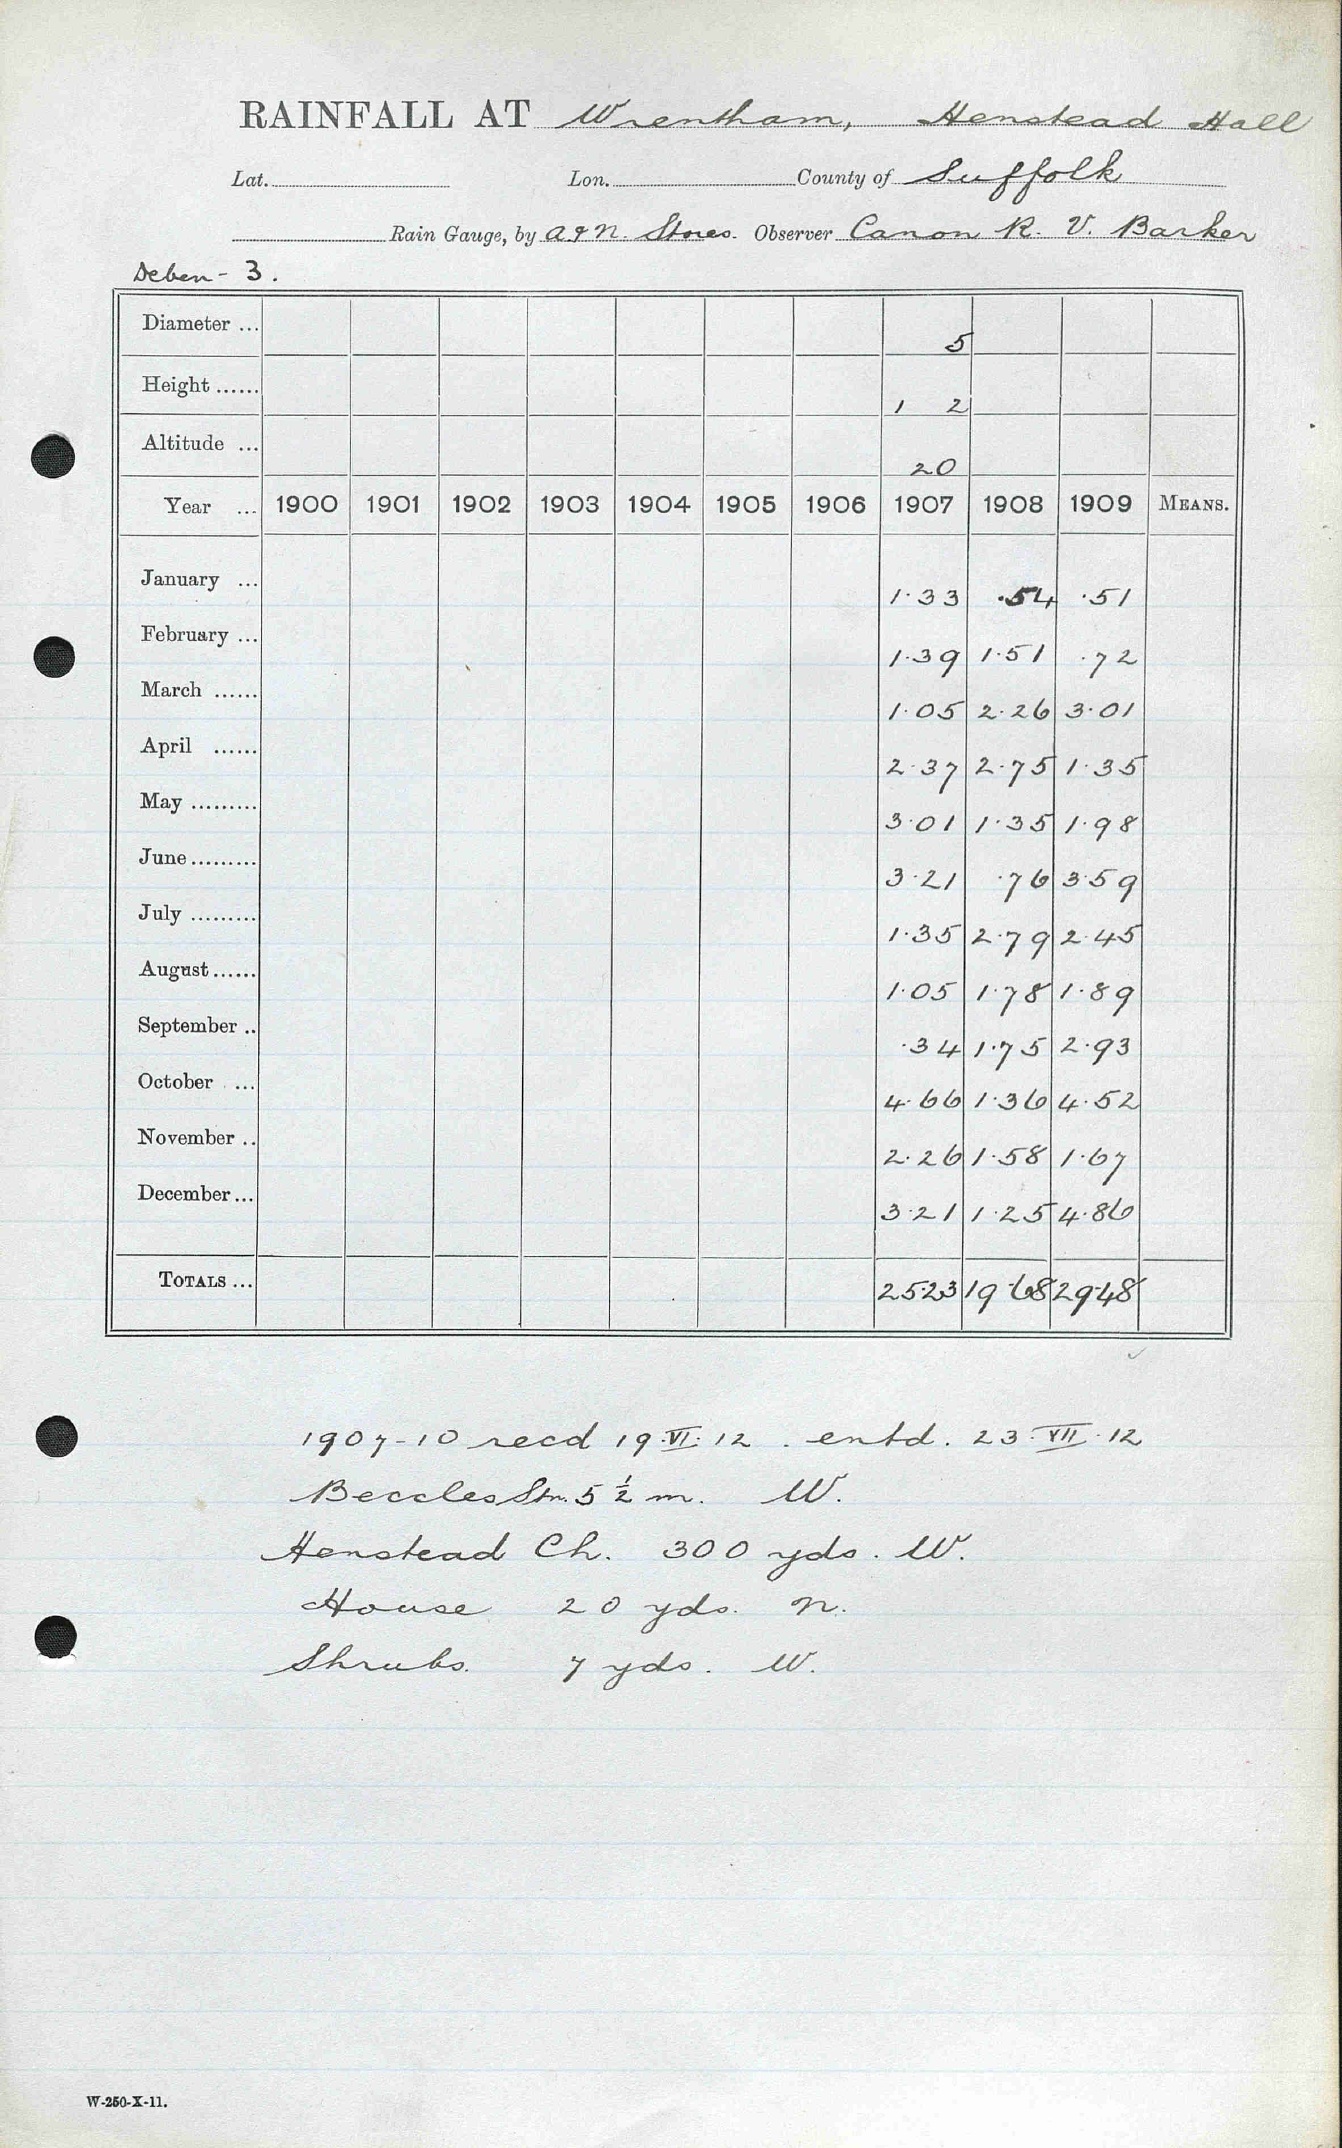 RAINFALL AT Wrentham, Henstead Hall
Lat. Lon. County of Suffolk
Rain Gauge, by A & N. Stores. Observer Canon R. V. Barker
Deben - 3.
Diameter ... 5
Height ...... 1 2
Altitude ... 20
Year ... 1900 1901 1902 1903 1904 1905 1906 1907 1908 1909 MEANS.
January ... 1.33 .54 .51
February ... 1.39 1.51 .72
March ...... 1.05 2.26 3.01
April ...... 2.37 2.75 1.35
May ......... 3.01 1.35 1.98
June ......... 3.21 .76 3.59
July ......... 1.35 2.79 2.45
August ...... 1.05 1.78 1.89
September .. .34 1.75 2.93
October ... 4.66 1.36 4.52
November .. 2.26 1.58 1.67
December ... 3.21 1.25 4.86
TOTALS ... 25.23 19.68 29.48
1907-10 recd 19.VI.12. entd. 23.VII.12
Beccles Stn. 5 1/2 m. W.
Henstead Ch. 300 yds. W.
House 20 yds. N.
Shrubs. 7 yds. W.
W-250-X-11.